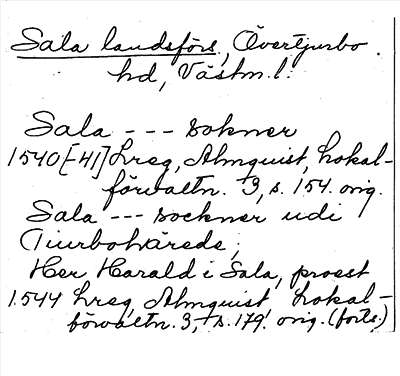 Sala landsförs., Övertjurbo
hd, Västm. l.
Sala --- sokner
1540[-41] Lreg, Almquist, Lokal-
förvaltn. 3, s. 154. orig.
Sala --- sockner udi
Tiurbohärede;
Her Harald i Sala, proest
1544 Lreg, Almquist Lokal-
förvaltn. 3, s. 179. orig. (forts.)